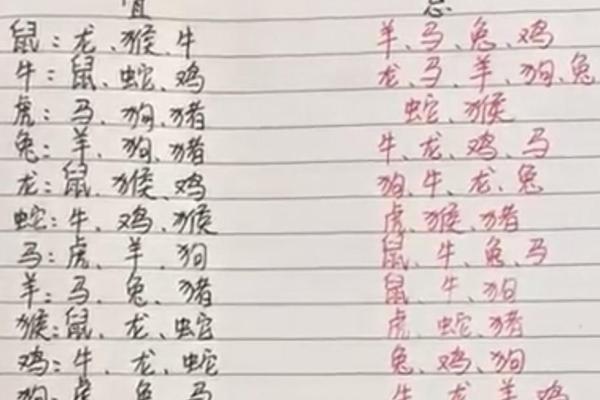 宜 忌
鼠：龙、猴、牛 羊、马、兔、鸡
牛：鼠、蛇、鸡 龙、马、羊、狗、兔
虎：马、狗、猪 蛇、猴
兔：羊、狗、猪 牛、龙、鸡、马
龙：鼠、猴、鸡 狗、牛、龙、兔
蛇：牛、鸡、猴 虎、猴、猪
马：虎、羊、狗 鼠、牛、兔、马
羊：马、兔、猪 鼠、牛、狗
猴：鼠、龙、蛇 虎、蛇、猪
鸡：牛、龙、蛇 兔、鸡、狗
狗：虎、兔、马 牛、龙、羊、鸡